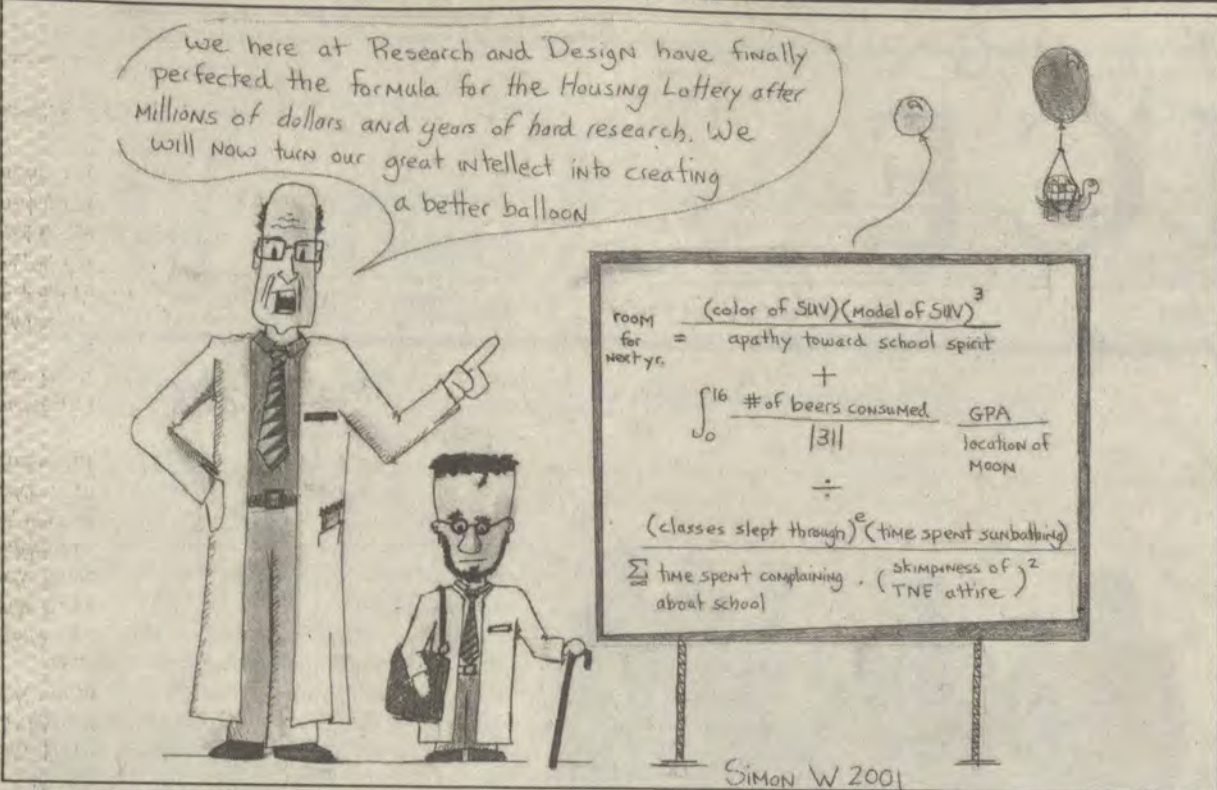 We here at Research and Design have finally
perfected the formula for the Housing Lottery after
Millions of dollars and years of hard research. We
will now turn our great intellect into creating
a better balloon
room
for
next yr.
=
(color of SUV)(Model of SUV)³
apathy toward school spirit
+
∫₀¹⁶ # of beers consumed
|31|
GPA
location of
Moon
÷
(classes slept through)ᵉ (time spent sunbathing)
∑ time spent complaining
about school
· (skimpiness of
TNE attire)²
Simon W 2001